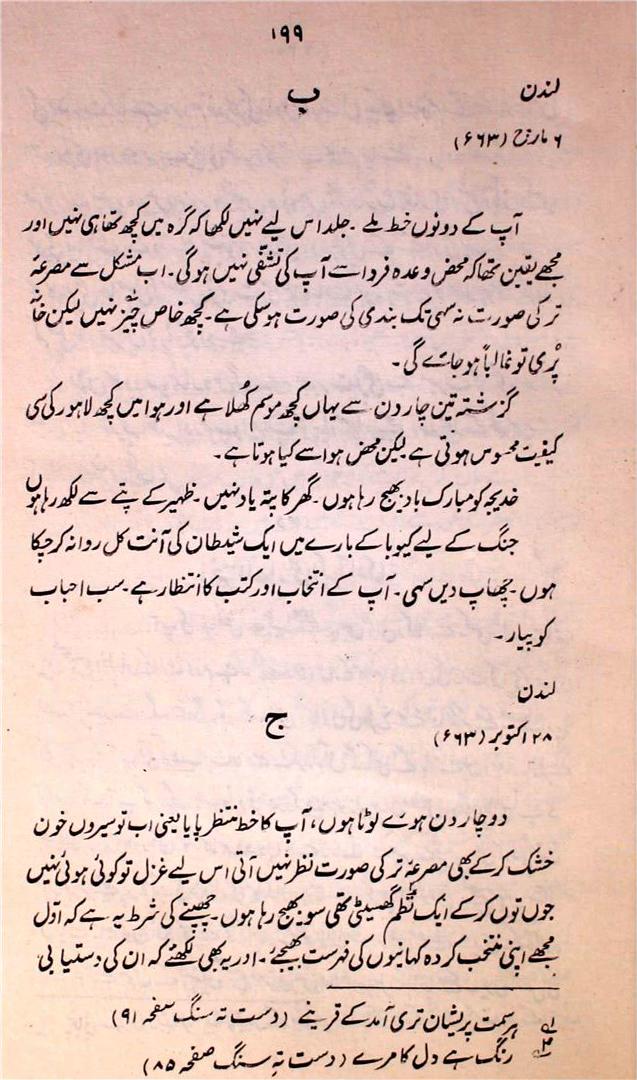 ۱۹۹
لندن
پ
۶ مارچ (۶۶۳)
آپ کے دونوں خط ملے۔ جلد اس لیے نہیں لکھا کہ گرہ میں کچھ تھا ہی نہیں اور
مجھے یقین تھا کہ محض وعدہ فردا سے آپ کی تشفّی نہیں ہوگی۔ اب مشکل سے مصرعۂ
تر کی صورت نہ سہی تک بندی کی صورت ہوسکی ہے۔ کچھ خاص چیز نہیں لیکن خانہ
پُری تو غالباً ہو جائے گی۔
گزشتہ تین چار دن سے یہاں کچھ موسم کُھلا ہے اور ہوا میں کچھ لاہور کی سی
کیفیت محسوس ہوتی ہے لیکن محض ہوا سے کیا ہوتا ہے۔
خدیجہ کو مبارک باد بھیج رہا ہوں۔ گھر کا پتہ یاد نہیں۔ ظہیر کے پتے سے لکھ رہا ہوں
جنگ کے لیے کیوبا کے بارے میں ایک شیطان کی آنت کل روانہ کرچکا
ہوں۔ چھاپ دیں سہی۔ آپ کے انتخاب اور کتب کا انتظار ہے۔ سب احباب
کو پیار۔
لندن
ج
۲۸ اکتوبر (۶۶۳)
دو چار دن ہوئے لوٹا ہوں، آپ کا خط منتظر پایا یعنی اب تو سیروں خون
خشک کرکے بھی مصرعۂ تر کی صورت نظر نہیں آتی اس لیے غزل تو کوئی ہوئی نہیں
جوں توں کرکے ایک نظم گھسیٹی تھی سو بھیج رہا ہوں۔ چھپنے کی شرط یہ ہے کہ اوّل
مجھے اپنی منتخب کردہ کہانیوں کی فہرست بھیجئے۔ اور یہ بھی لکھئے کہ ان کی دستیابی
۱؎ ہر سمت پریشاں تری آمد کے قرینے (دست تہ سنگ صفحہ ۹۱)
۲؎ رنگ ہے دل کا مرے (دست تہِ سنگ صفحہ ۸۵)